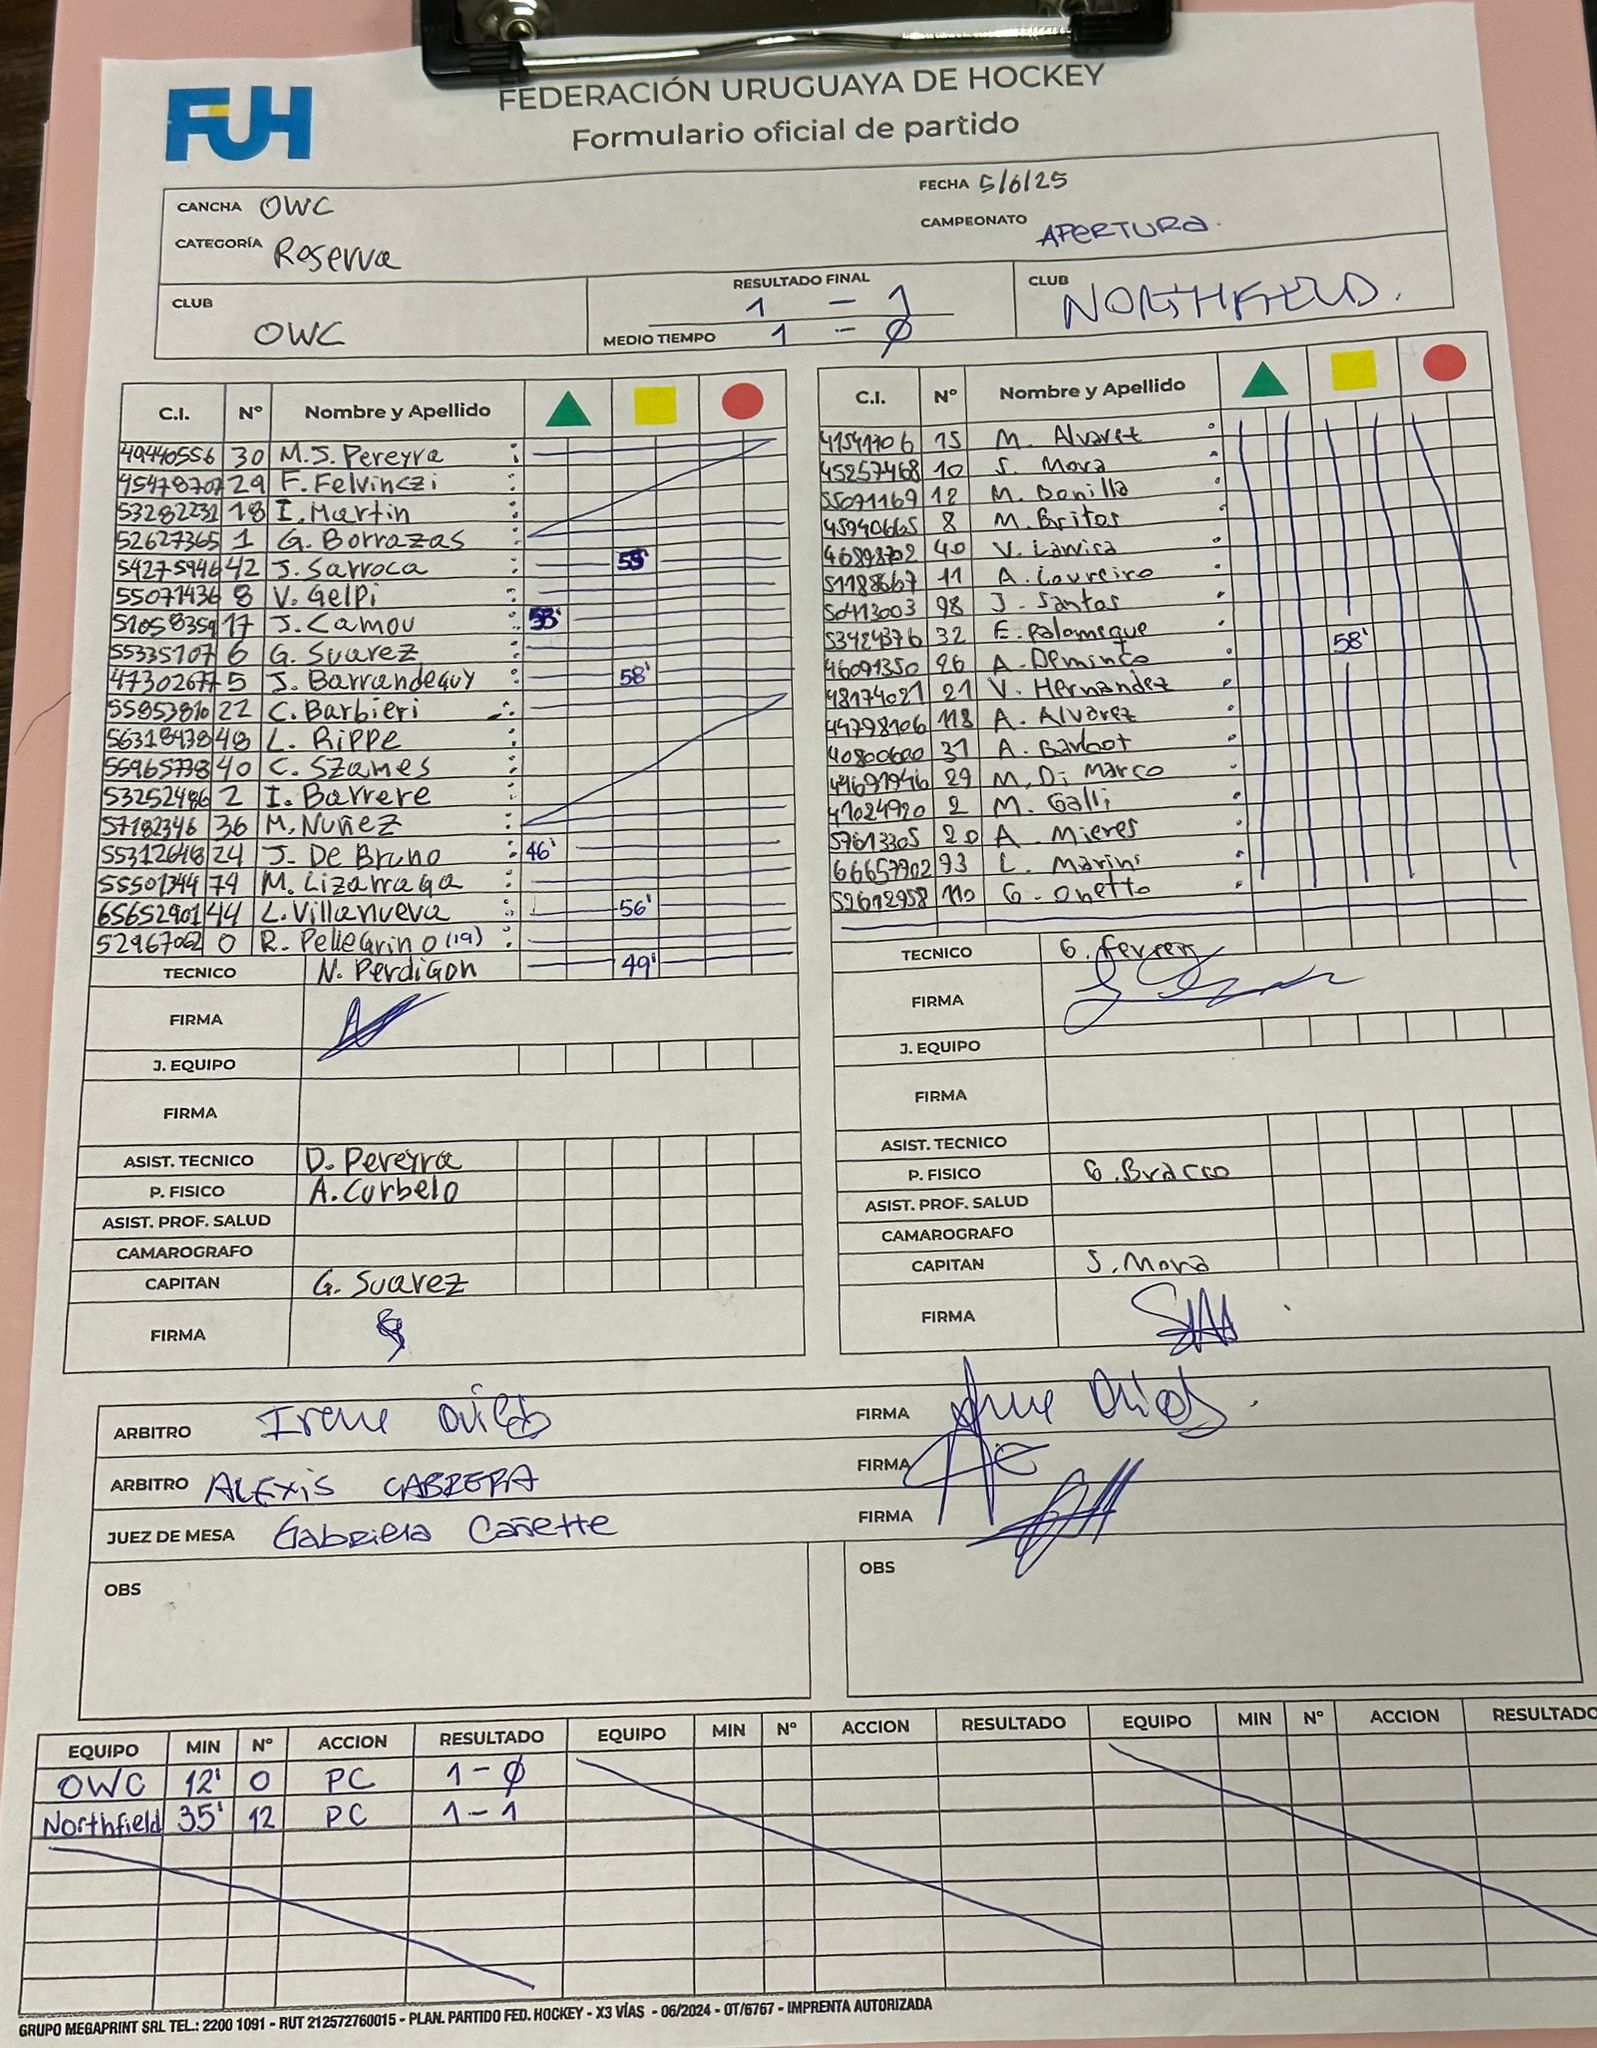 FUH
FEDERACIÓN URUGUAYA DE HOCKEY
Formulario oficial de partido
CANCHA OWC
FECHA 5/6/25
CATEGORÍA Reserva
CAMPEONATO APERTURA.
CLUB OWC
RESULTADO FINAL 1 - 1
MEDIO TIEMPO 1 - 0
CLUB NORTHFIELD.
C.I. Nº Nombre y Apellido
49440556 30 M.S. Pereyra
45478707 29 F. Felvinczi
53282231 18 I. Martin
52627365 1 G. Borrazas
54275946 42 J. Sarroca 55'
55071436 8 V. Gelpi
51058359 17 J. Camou 53'
55335107 6 G. Suarez
47302677 5 J. Barrandeguy 58'
55853810 22 C. Barbieri
56318478 48 L. Rippe
55965778 40 C. Szames
53252486 2 I. Barrere
57182346 36 M. Nuñez
55312648 24 J. De Bruno 46'
55501344 74 M. Lizarraga
65652901 44 L. Villanueva 56'
52967062 0 R. Pellegrino (19)
TECNICO N. Perdigon 49'
FIRMA
J. EQUIPO
FIRMA
ASIST. TECNICO D. Pereyra
P. FISICO A. Curbelo
ASIST. PROF. SALUD
CAMAROGRAFO
CAPITAN G. Suarez
FIRMA
C.I. Nº Nombre y Apellido
41541706 15 M. Alvarez
45257468 10 S. Mora
55071169 12 M. Bonilla
45940665 8 M. Britos
46898702 40 V. Larrica
51188667 11 A. Loureiro
50413003 98 J. Santos
53424376 32 E. Palomeque 58'
46091350 26 A. Deminco
48174021 21 V. Hernandez
44798106 118 A. Alvarez
40800600 31 A. Barbot
44691946 29 M. Di Marco
47024920 2 M. Galli
57613305 20 A. Mieres
66657902 93 L. Marini
52612958 110 G. Onetto
TECNICO G.
FIRMA
J. EQUIPO
FIRMA
ASIST. TECNICO
P. FISICO G. Bracco
ASIST. PROF. SALUD
CAMAROGRAFO
CAPITAN S. Mora
FIRMA
ARBITRO Irene FIRMA
ARBITRO ALEXIS CABRERA FIRMA
JUEZ DE MESA Gabriela Cañette FIRMA
OBS
OBS
EQUIPO MIN Nº ACCION RESULTADO EQUIPO MIN Nº ACCION RESULTADO EQUIPO MIN Nº ACCION RESULTADO
OWC 12' 0 PC 1-0
Northfield 35' 12 PC 1-1
GRUPO MEGAPRINT SRL TEL.: 2200 1091 - RUT 212572760015 - PLAN. PARTIDO FED. HOCKEY - X3 VÍAS - 06/2024 - OT/6767 - IMPRENTA AUTORIZADA